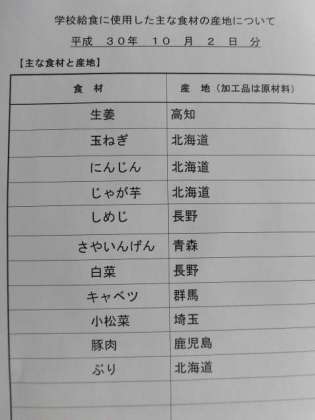 学校給食に使用した主な食材の産地について
平成 30年 10 月 2 日 分
【主な食材と産地】
食 材 産 地（加工品は原材料）
生姜 高知
玉ねぎ 北海道
にんじん 北海道
じゃが芋 北海道
しめじ 長野
さやいんげん 青森
白菜 長野
キャベツ 群馬
小松菜 埼玉
豚肉 鹿児島
ぶり 北海道